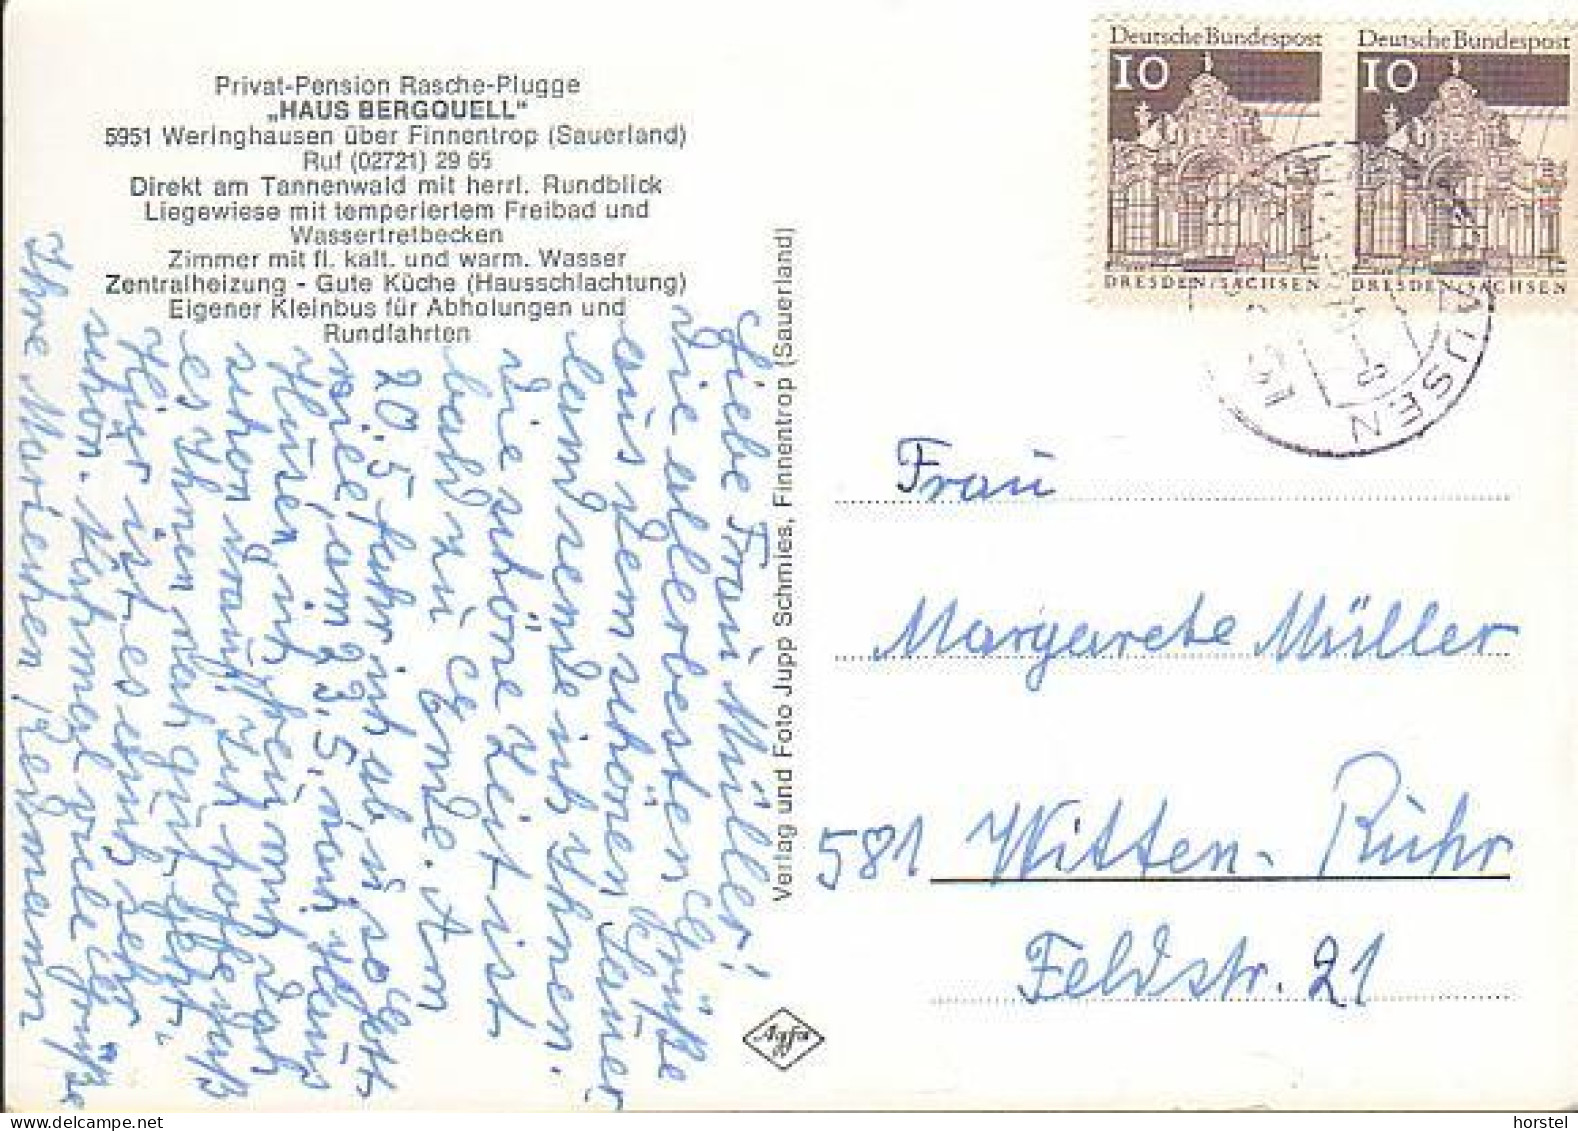 Privat-Pension Rasche-Plugge
„HAUS BERGQUELL"
5951 Weringhausen über Finnentrop (Sauerland)
Ruf (02721) 29 65
Direkt am Tannenwald mit herrl. Rundblick
Liegewiese mit temperiertem Freibad und
Wassertretbecken
Zimmer mit fl. kalt. und warm. Wasser
Zentralheizung - Gute Küche (Hausschlachtung)
Eigener Kleinbus für Abholungen und
Rundfahrten
Liebe Frau Müller!
Die allerbesten Grüße
aus dem schönen Sauer
land sende ich Ihnen.
Die schöne Zeit ist
bald zu Ende. Am
20.5 fahr ich ab, so Gott
will, am 23.5. nach
Hüsen, ich freu mich
schon drauf. Ich hoffe, daß
es Ihnen noch gut geht.
Hier ist es auch sehr
schön. Nochmal viele Grüße
Ihre Mariechen
Verlag und Foto Jupp Schmies, Finnentrop (Sauerland)
Agfa
Deutsche Bundespost
10
DRESDEN/SACHSEN
Deutsche Bundespost
10
DRESDEN/SACHSEN
AUSEN
Frau
Margarete Müller
581 Witten-Ruhr
Feldstr. 21
horstel